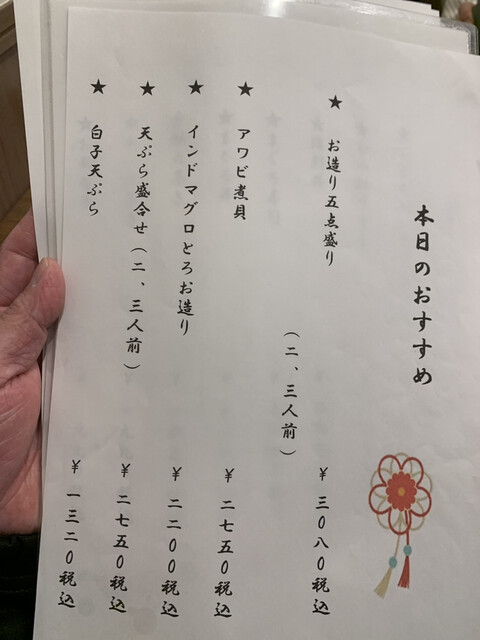 本日のおすすめ
★ お造り五点盛り ¥三〇八〇税込
（二、三人前）
★ アワビ煮貝 ¥二七五〇税込
★ インドマグロとろお造り ¥二二〇〇税込
★ 天ぷら盛合せ（二、三人前） ¥二七五〇税込
★ 白子天ぷら ¥一三二〇税込